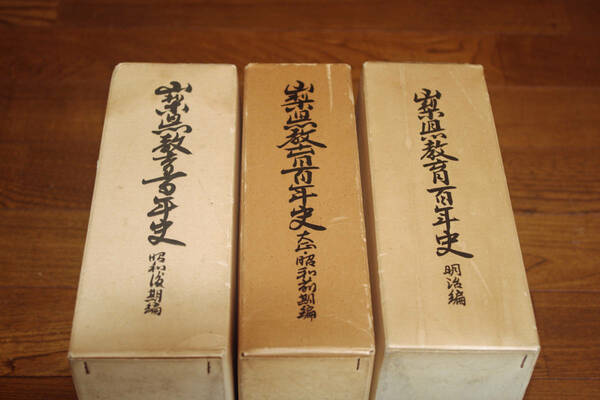 山梨県教育百年史 明治編
山梨県教育百年史 大正・昭和前期編
山梨県教育百年史 昭和後期編